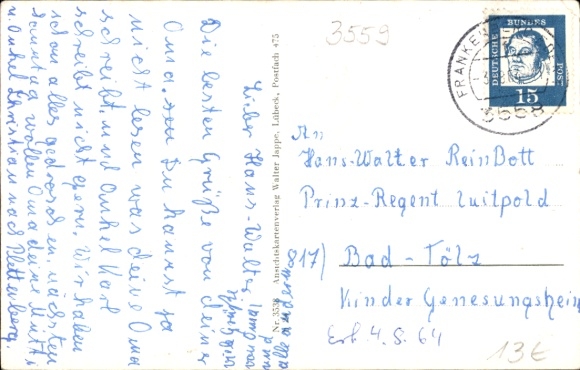 3559
Lieber Hans-Walter
Die besten Grüße von deiner
Oma. Den Du kannst ja
nicht lesen was deine Oma
schreibt. und Onkel Karl
schreibt nicht gern. Wir haben
schon alles gedroschen. nächsten
Sonntag wollen Oma deine Mutti
u. Onkel Christian nach Plettenberg.
alle andern
Nr. 3538 Ansichtskartenverlag Walter Jappe, Lübeck, Postfach 475
DEUTSCHE
BUNDES
POST
15
FRANKE
3558
An
Hans-Walter ReinBott
Prinz-Regent Luitpold
817) Bad-Tölz
Kinder Genesungsheim
Erh. 4. S. 64
13€